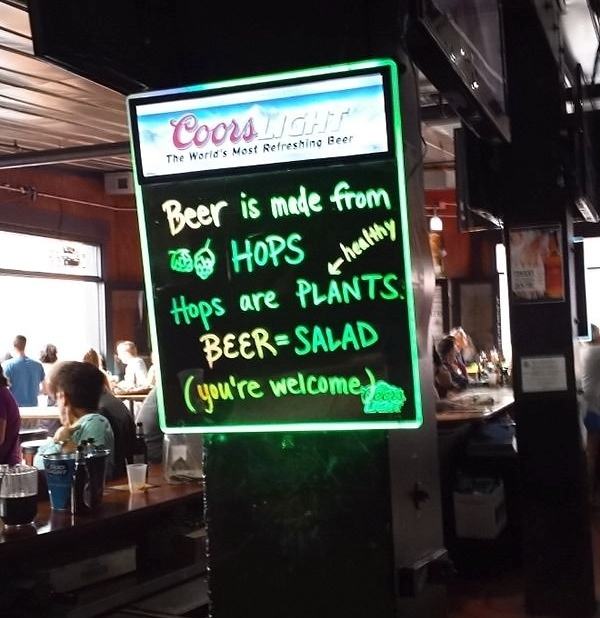 Coors LIGHT
The World's Most Refreshing Beer
Beer is made from
HOPS
healthy
Hops are PLANTS.
BEER=SALAD
(you're welcome)
Coors
Light